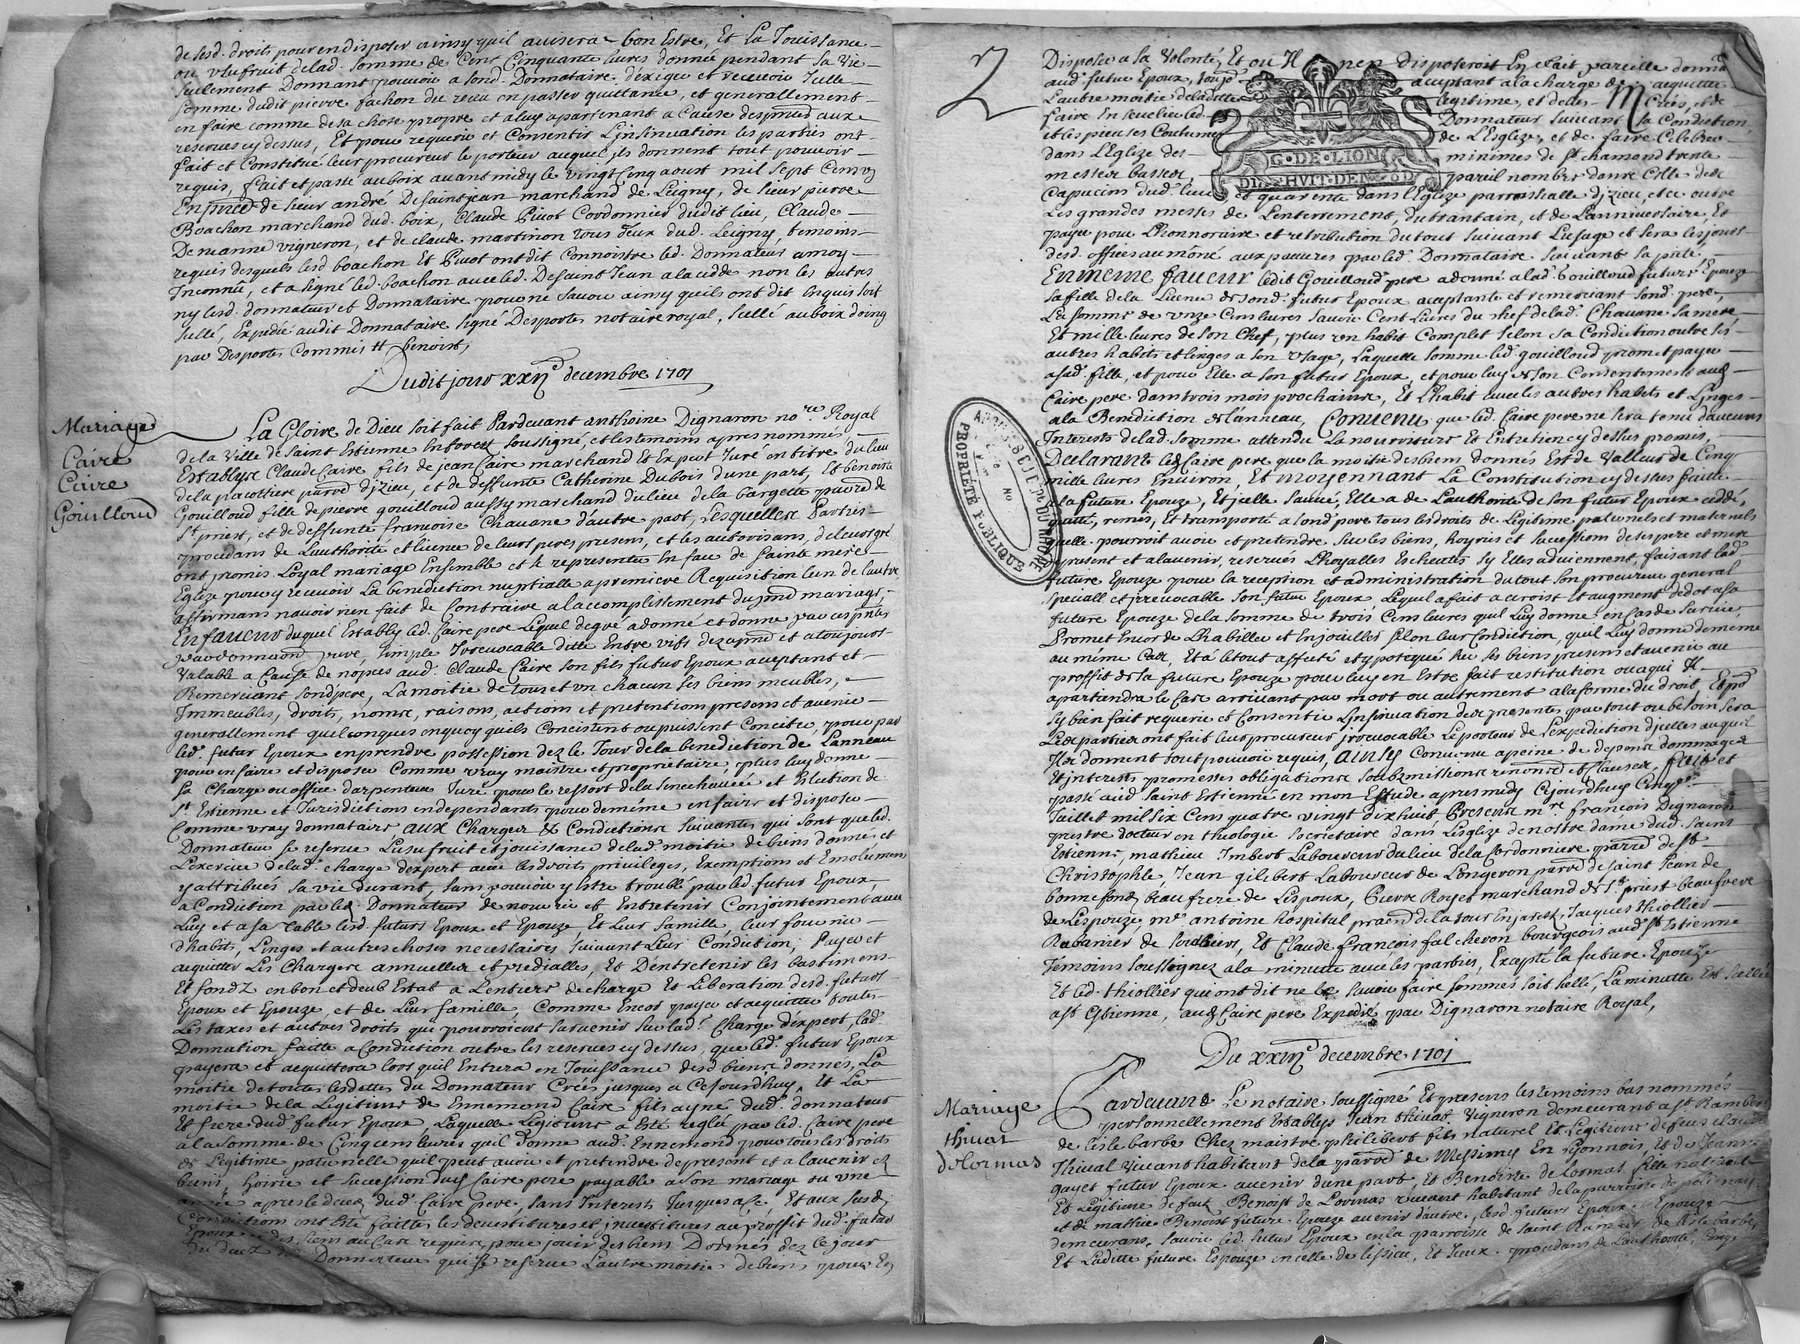 de sesd. droits pour en disposer ainsy quil avisera bon estre, Et La Jouissance
ou usufruit delad. somme de Cent Cinquante livres donnée pendant sa vie
seulement Donnant pouvoir a sond. Donnataire d'exiger et recevoir Jcelle
somme dudit pierre fachon du receu en passer quittance, et generallement
en faire comme de sa chose propre et a luy apartenant a cause desprnd aux
reserves cy dessus, Et pour requerir et Consentir L'insinuation les parties ont
fait et Constitué leur procureur le porteur auquel ils donnent tout pouvoir
requis, fait et passé au boix avant midy le vingt cinq aoust mil sept Cens
En prnce de sieur andré Desaintjean marchand de Leigny, de sieur pierre
Boachon marchand dud. boix, Claude Pivot Cordonnier dudit lieu, Claude
Demeanne vigneron, et de claude martinon tous deux dud. Leigny, temoins
requis desquels lesd boachon Et Pivot ont dit Connoistre led. Donnateur a moy
Inconnu, et a signé led. boachon avec led. Desaint Jean a la cedde non les autres
ny lesd. donnateur et Donnataire pour ne savoir ainsy quils ont dit Enquis soit
sellé, Expedié audit Donnataire signé Desportes notaire royal, sellé au boix d'oing
par Desportes Commis // benoist,
Dudit jour xxij.e decembre 1701
Mariage
Caire
Civre
Gouilloud
La Gloire de Dieu soit fait Pardevant anthoine Dignaron no.re Royal
de la Ville de Saint Estienne Enforest soussigné, et les temoins apres nommés
Estably Claude Caire fils de jean Caire marchand Et Expert Juré en titre du lieu
de la placottiere parred d'jzieu, et de deffunte Catherine Dubois d'une part, et benoite
Gouilloud fille de pierre gouilloud aussy marchand du lieu de la bargette parred de
St. priest, et de deffunte francoise Chavane d'autre part, Lesquelles Parties
procedans de L'authorité et licence de leurs peres presens, et les authorisans, de leurs gré
ont promis Loyal mariage Ensemble et se representer En face de sainte mere
Eglize pour y recevoir La benediction nuptialle a premiere Requisition l'un de l'autre
affirmans n'avoir rien fait de Contraire a l'accomplissement du pnd mariage,
En faveur duquel Estably led. Caire pere Lequel de gré a donné et donne par ces pntes
par donnaon pure, simple Irrevocable ditte Entre vifs dez apnt et a toujours
Valable a Cause de nopces aud. Claude Caire son fils futur Epoux aceptant et
Remerciant sond pere, La moitié de tous et un chacun ses biens meubles,
Immeubles, droits, noms, raisons, actions et pretentions presens et avenir
generallement quelconques en quoy quils Concistent ou puissent Concister, pour par
led. futur Epoux en prendre possession dez le Jour de la benediction de Lanneau
pour en faire et disposer Comme vray maistre et proprietaire, plus luy donne
sa Charge ou office d'arpenteur Juré pour le ressort de la senechaucée et Election de
St. Estienne et Jurisdictions en dependants pour de même en faire et disposer
Comme vray donnataire aux Charges & Condictions suivantes qui sont que led.
Donnateur se reserve L'usufruit et jouissance delad. moitié de biens donnés et
L'exercice delad. charge d'expert avec les droits privileges, Exemptions et Emolumens
y attribués sa vie durant, sans pouvoir y Estre troublé par led. futur Epoux,
a Condiction par led. Donnateur de nourrir et Entretenir Conjointement avec
Luy et a sa table lesd. futurs Epoux et Epouze, Et Leur famille, leur fournir
d'habits, Linges et autres choses necessaires suivant Leur Condiction, Payer et
acquitter Les Charges annuelles et predialles, Et D'entretenir les bastimens
Et fondz en bon et deub Estat a L'entiere decharge Et Liberation desd. futurs
Epoux et Epouze, et de Leur famille, Comme Encor payer et acquitter toutes
Les taxes et autres droits qui pourroient survenir sur lad. Charge d'expert, lad.
Donnation faitte a Condiction outre les reserves cy dessus, que led. futur Epoux
payera et acquittera lors quil Entrera en Jouissance desd biens donnés, La
moitié de toutes les dettes du Donnateur Créés jusques a Cejourdhuy, Et La
moitié de la Legitime de Ennemond Caire fils ayné dud. donnateur
Et frere dud. futur Epoux, Laquelle Legitime a Esté reglée par led. Caire pere
a la somme de Cinq cens livres quil donne aud. Ennemond pour tous les droits
de Legitime paternelle quil peut avoir et pretendre de present et a l'avenir
biens, hoirie et succession dud Caire pere payable a son mariage ou une
année apres le decez dud. Caire pere, sans Interests Jusques a ce, Et aux susd.
Condictions ont Esté faittes les devestitures et investitures au proffit dud. futur
Epoux des biens au Cas requis, pour jouir des biens Donnés dez le jour
du decez du Donnateur qui se reserve L'autre moitié de biens pour En
2
Disposer a sa Volonté, Et ou Il n'en disposeroit En fait pareille donnaon
aud. futur Epoux, aceptant a la charge d'acquitter
L'autre moitié de la ditte legitime, et dettes Créés, et de
faire Ensevelir led. Donnateur suivant sa Condiction
et les pieuses Coutumes de L'Esglize, et de faire Celebrer
dans L'Eglize des minimes de St. chamond trente
messes basses, pareil nombre dans Celle des
Capucins dud. lieu et quarente dans L'Eglize parroissialle d'jzieu, et ce outre
Les grandes messes de L'enterrement, du trantain, et de L'anniversaire, Et
payer pour L'honnoraire et retribution du tout suivant L'usage et sera les jours
desd. offices aumôné aux pauvres par led. Donnataire suivant sa pieté,
En meme faveur ledit Gouilloud pere a donné a lad. Gouilloud future Epouze
sa fille de la Licence de sond. futur Epoux aceptante et remerciant sond. pere,
La somme de unze Cens livres savoir Cent Livres du chef delad. Chavane sa mere,
Et mille livres de son Chef, plus un habit Complet selon sa Condiction outre ses
autres habits et linges a son usage, Laquelle somme led. gouilloud promet payer
a sad. fille, et pour Elle a son futur Epoux, et pour luy & son Consentement aud
Caire pere dans trois mois prochains, Et L'habit avec les autres habits et Linges
a la Benediction de L'anneau, Convenu que led. Caire pere ne sera tenu d'aucuns
Interests delad. somme attendu La nourriture et Entretien cy dessus promis,
Declarant led Caire pere que la moitié des biens donnés Est de Valleur de Cinq
mille livres Environ, Et moyennant La Constitution cy dessus faitte
a la future Epouze, Et jcelle sauve, Elle a de L'authorité de son futur Epoux cedde,
quitté, remis, et transporté a sond pere tous les droits de Legitime paternels et maternels
quelle pourroit avoir et pretendre sur les biens, hoyries et successions de ses pere et mere
present et a l'avenir, reservés Lhoyalles Escheutes sy Elles adviennent, faisant lad.
future Epouze pour la reception et administration du tout son procureur general
special et jrrevocable son futur Epoux Lequel a fait accroist Et augment de dot a sa
future Epouze de la somme de trois Cens livres quil Luy donne en Cas de survie,
Promet Encor de L'habiller et Enjoailler selon leur Condiction, quil Luy donne de meme
au même Cas, Et a le tout affecté et ypotequé sur ses biens presens et avenir au
proffit de sa future Epouze pour luy en Estre fait restitution ou a qui Il
apartiendra le Cas arrivant par mort ou autrement a la forme du droit, Et po.r
sy bien fait requerir et Consentir L'insinuation des presentes partout ou besoin sera
Les parties ont fait leur procureur jrrevocable Le porteur de L'expedition d'jcelles auquel
Ils donnent tout pouvoir requis, ainsy Convenu a peine de depens dommages
Et interests, promesses obligations soubzmissions renonces et clauses, fait et
passé aud. Saint Estienne en mon Estude apres midy Cejourdhuy Cinq.me
Juillet mil six Cens quatre vingt dix huit Presens m.re françois Dignaron
prestre docteur en theologie societaire dans L'esglize de nostre dame dud. saint
Estienne, mathieu Imbert Laboureur du lieu de la Cordonniere parred de St.
Christophle, Jean gilibert Laboureur de Longeron parred de saint Jean de
bonnefond, beaufrere de L'espoux, Pierre Royet marchand de St. priest beaufrere
de L'espouze, m.e antoine hospital pratid de la tour En Jarest, Jacques thiollier
Rubanier de sorbiers, Et Claude françois falcheron bourgeois aud. St. Estienne
Temoins soussignez a la minutte avec les parties, Excepté la future Epouze
Et led. thiollier qui ont dit ne le savoir faire sommés soit sellé, La minutte Est sellée
a St. Estienne, aud Caire pere Expedié par Dignaron notaire Royal,
Du xxiij.e decembre 1701
Mariage
thivat
delormas
Pardevant Le notaire soussigné Et presens les temoins bas nommés
personnellement Establys Jean thivat Vigneron demeurant a St. Rambert
de l'isle barbe Chez maistre philibert fils naturel Et legitime de feus claude
Thivat vivant habitant de la parred de Messimy En Lyonnois, Et de Jeanne
gayet futur Epoux avenir d'une part, Et Benoite de Lormas fille naturelle
Et legitime de feuz Benoist de Lormas vivant habitant de la parroisse de
et de mathie Benoist future Epouze avenir d'autre, lesd. futurs Epoux et Epouze
demeurans, savoir led. futur Epoux en la parroisse de saint Rambert de L'isle barbe,
Et Laditte future Espouze en celle de Lissieu, Et Jceux procedans de L'authorité,
G·DE·LION
ARCHIVES DU RHÔNE
PROPRIÉTÉ PUBLIQUE